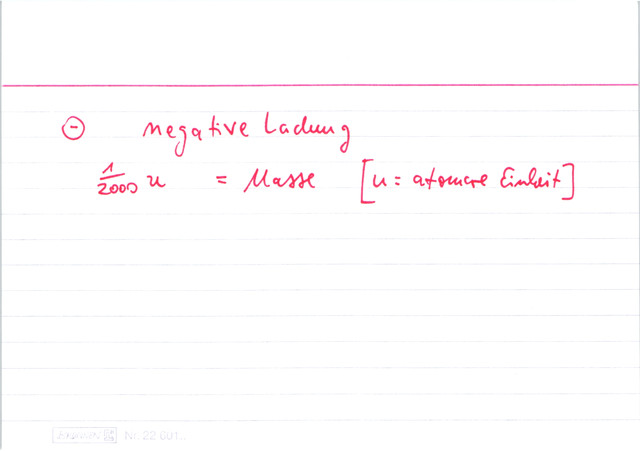 ⊖ negative Ladung
1/2000 u = Masse [u = atomare Einheit]
Nr. 22 601..